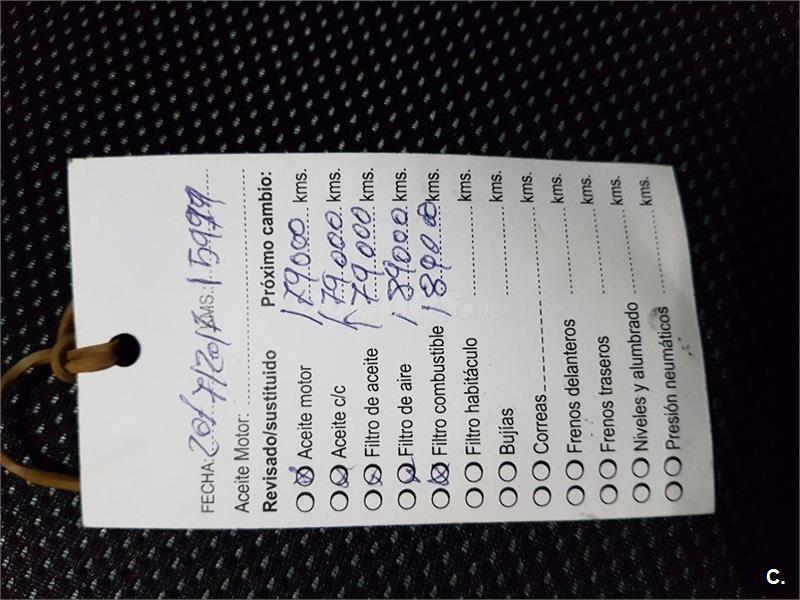 FECHA: 20/7/2017 KMS. 15999
Aceite Motor:
Revisado/sustituido Próximo cambio:
Aceite motor 179000 kms.
Aceite c/c 179000 kms.
Filtro de aceite 179000 kms.
Filtro de aire 189000 kms.
Filtro combustible 189000 kms.
Filtro habitáculo kms.
Bujías kms.
Correas kms.
Frenos delanteros kms.
Frenos traseros kms.
Niveles y alumbrado kms.
Presión neumáticos kms.
C.